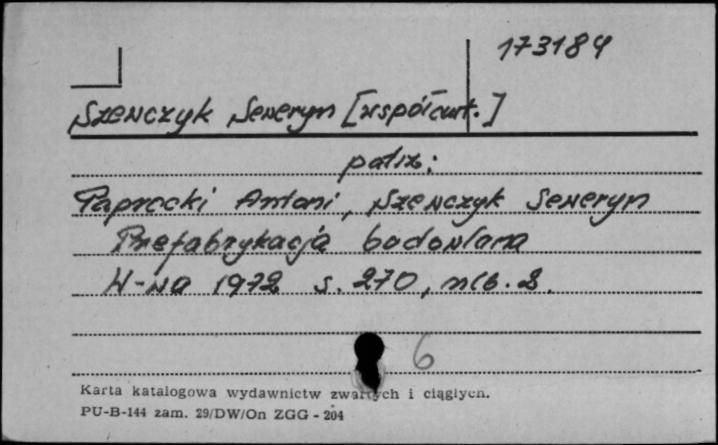 173184
Szewczyk Seweryn [współaut.]
patrz:
Paprocki Antoni, Szewczyk Seweryn
Prefabrykacja budowlana
W-wa 1972 s. 270, nlb. 2.
6
Karta katalogowa wydawnictw zwartych i ciągłych.
PU-B-144 zam. 29/DW/On ZGG - 204